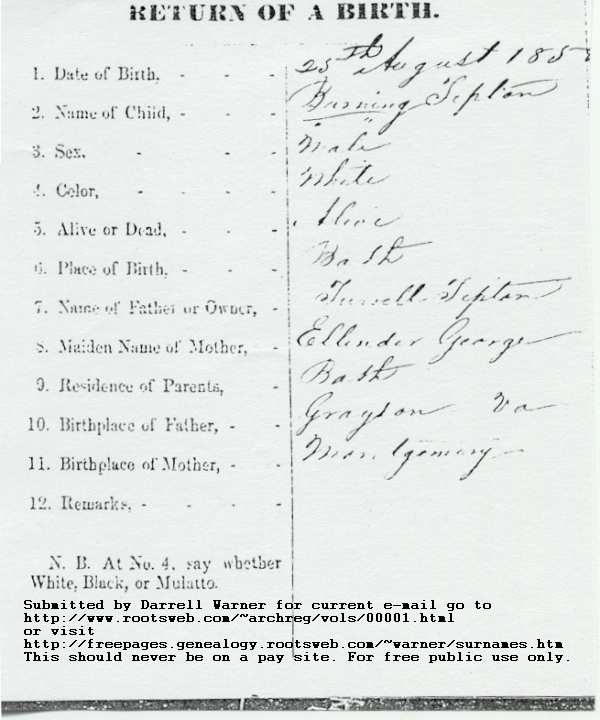 RETURN OF A BIRTH.
1. Date of Birth, - - - 25th August 185
2. Name of Child, - - - Burning Tipton
3. Sex. - - - Male
4. Color, - - - - White
5. Alive or Dead, - - - Alive
6. Place of Birth, - - - Bath
7. Name of Father or Owner, - Tipton
8. Maiden Name of Mother, - Ellender George
9. Residence of Parents, - Bath
10. Birthplace of Father, - - Grayson Va
11. Birthplace of Mother, - - Montgomery
12. Remarks, - - - -
N. B. At No. 4, say whether
White, Black, or Mulatto.
Submitted by Darrell Warner for current e-mail go to
http://www.rootsweb.com/~archreg/vols/00001.html
or visit
http://freepages.genealogy.rootsweb.com/~warner/surnames.htm
This should never be on a pay site. For free public use only.